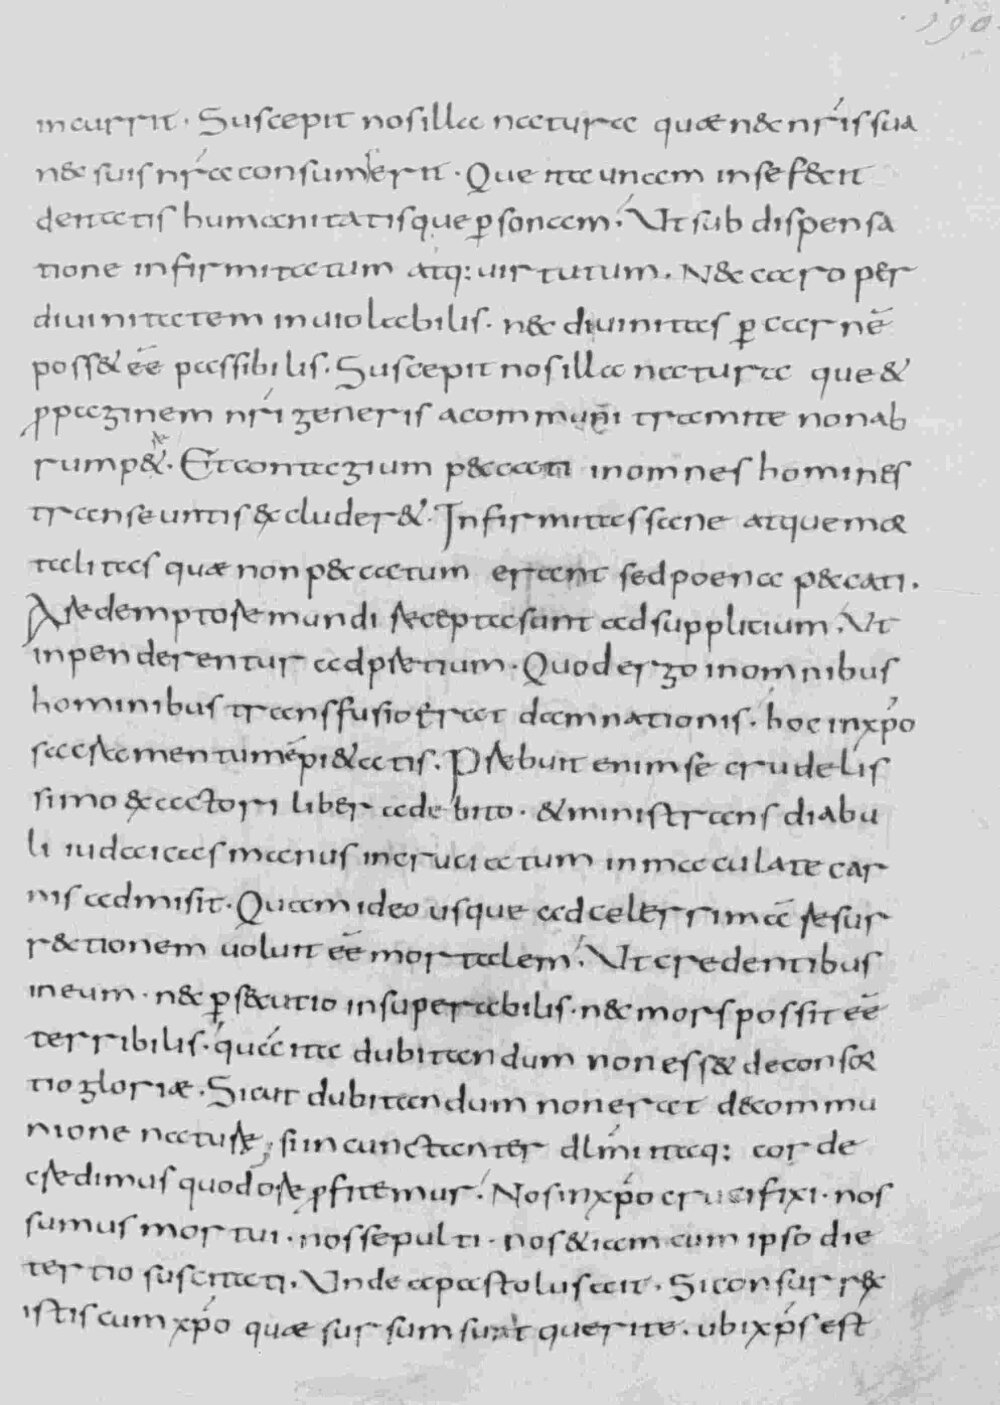 190
incurrit. Suscepit nos illa natura quæ nec nr̄is sua
nec suis nr̄a consumerit. Que ita unam in se fecit
deitatis humanitatisque p̱sonam. Ut sub dispensa
tione infirmitatum atq: uirtutum. Nec caro per
diuinitatem inuiolabilis. nec diuinitas p̱ carnē
poss& eē passibilis. Suscepit nos illa natura que &
ꝓpaginem nr̄i generis acommuni tramite non ab
rump&. Et contagium peccati inomnes homines
transeuntis excluder&. Infirmitas sane atque mor
talitas quæ non peccatum erant sed poena peccati.
A redemptore mundi receptae sunt ad supplicium. Ut
inpenderentur ad prætium. Quod ergo inomnibus
hominibus transfusio erat damnationis. hoc inxp̄o
sacramentum ē pi&atis. Prebuit enim se crudelis
simo exactori liber adebito. & ministrans diabu
li iudaicas manus incruciatum inmaculate car
nis admisit. Quam ideo usque ad celerrimā resur
rectionem uoluit eē mortalem. Ut credentibus
ineum. nec p̱secutio insuperabilis. nec mors possit eē
terribilis. quē ita dubitandum non ess& deconsor
tio gloriæ. Sicut dubitandum non erat decommu
nione nature, si incunctanter dl̄m̄i itaq: corde
credimus quod ore ꝓfitemur. Nos inxp̄o crucifixi. nos
sumus mortui. nos sepulti. nos & iam cum ipso die
tertio suscitati. Unde apostolus ait. Si consurrex
istis cum xp̄o quæ sursum sunt querite. ubi xp̄s est